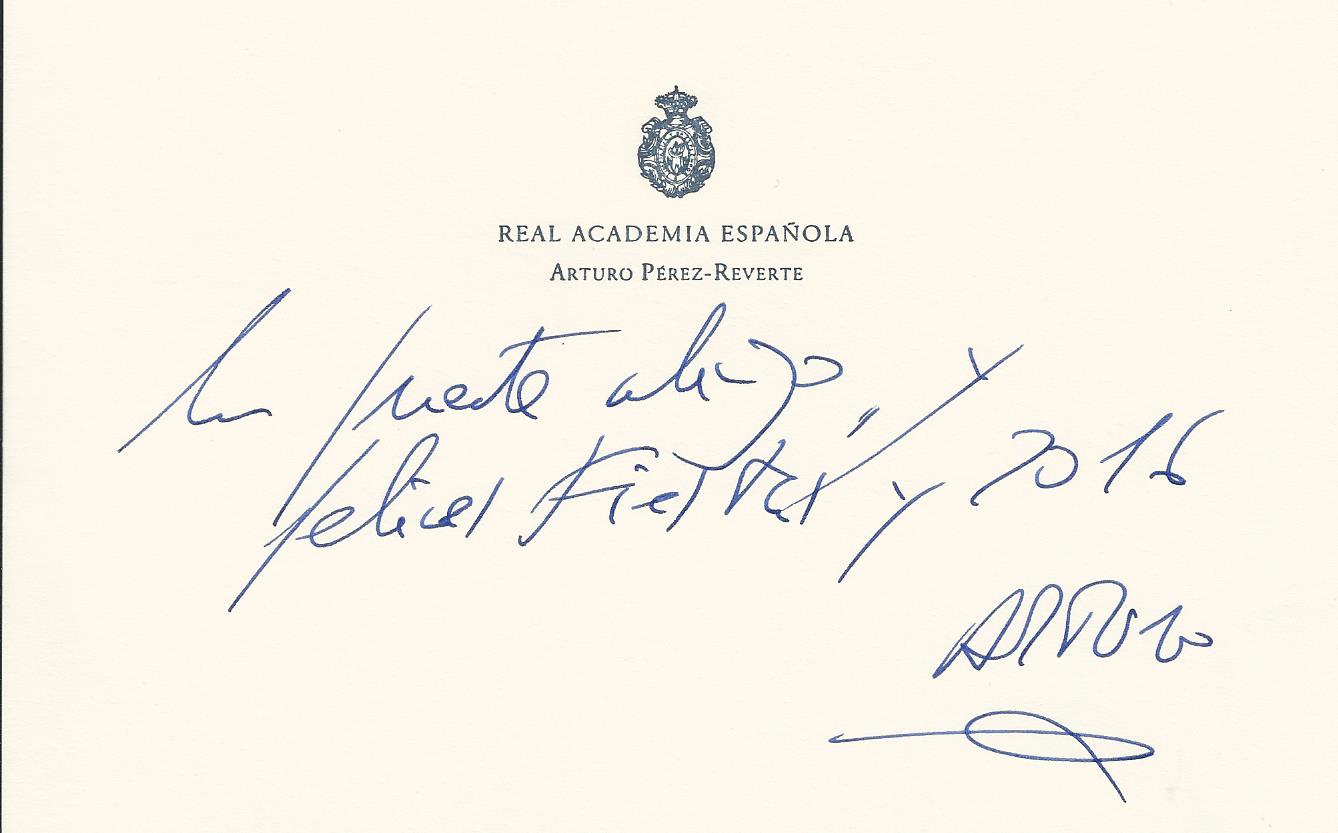 REAL ACADEMIA ESPAÑOLA
ARTURO PÉREZ-REVERTE
Un fuerte abrazo y
felices Fiestas y 2016
ARTURO